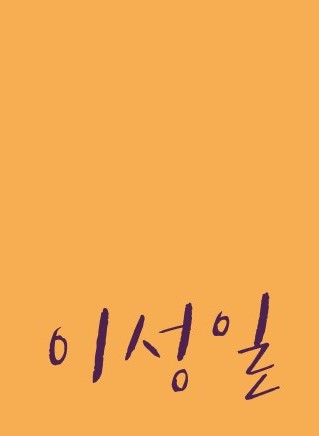 이성일